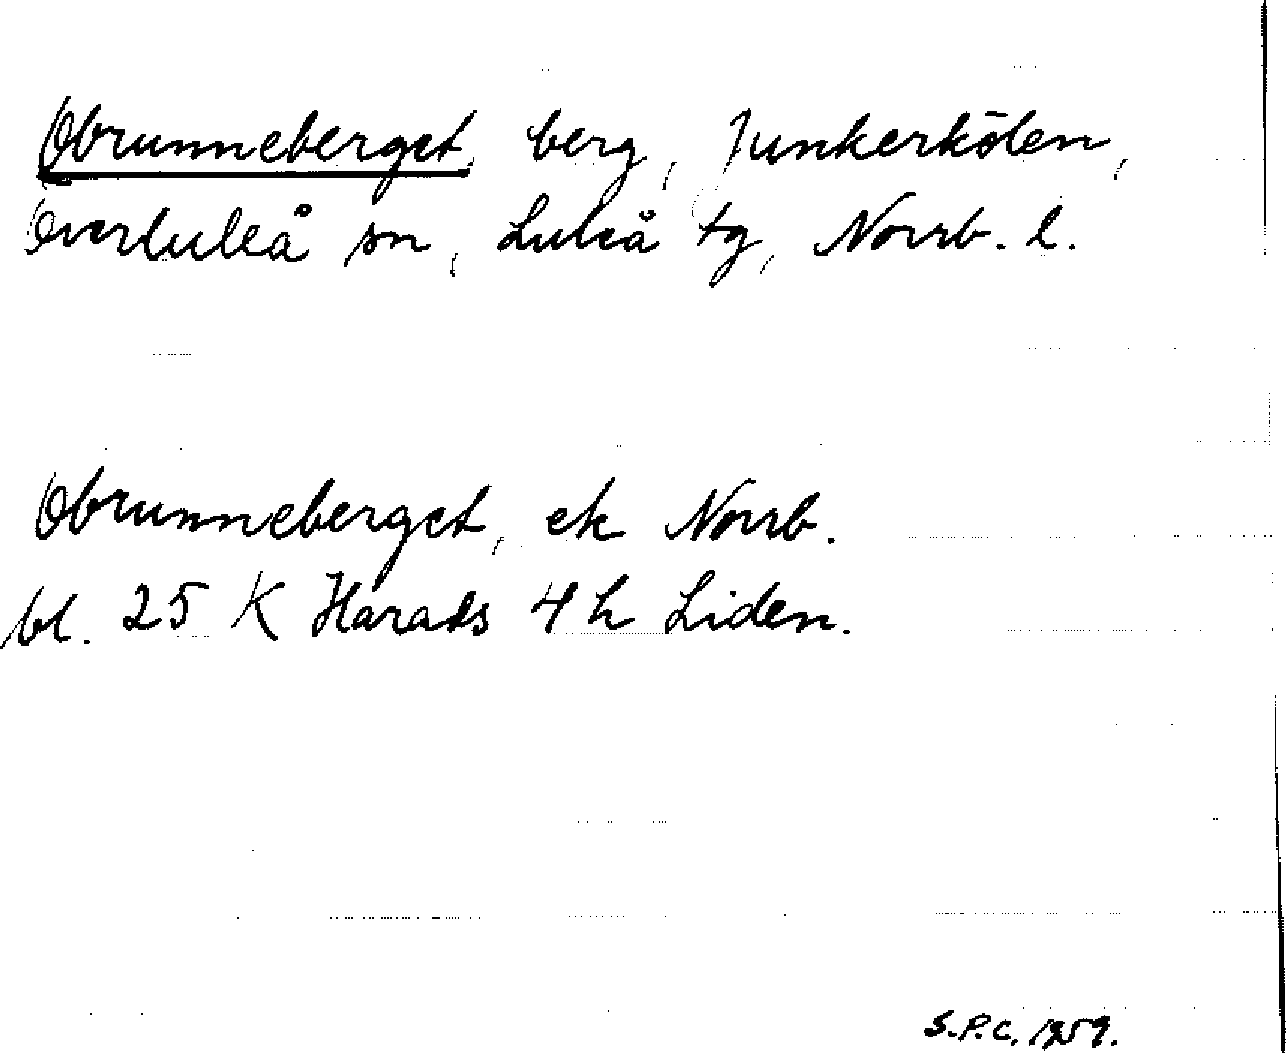 Obrunneberget, berg, Junkerkölen,
Överluleå sn, Luleå tg, Norrb. l.
Obrunneberget, ek Norrb.
bl. 25 K Harads 4 h Liden.
S.P.C. 1959.